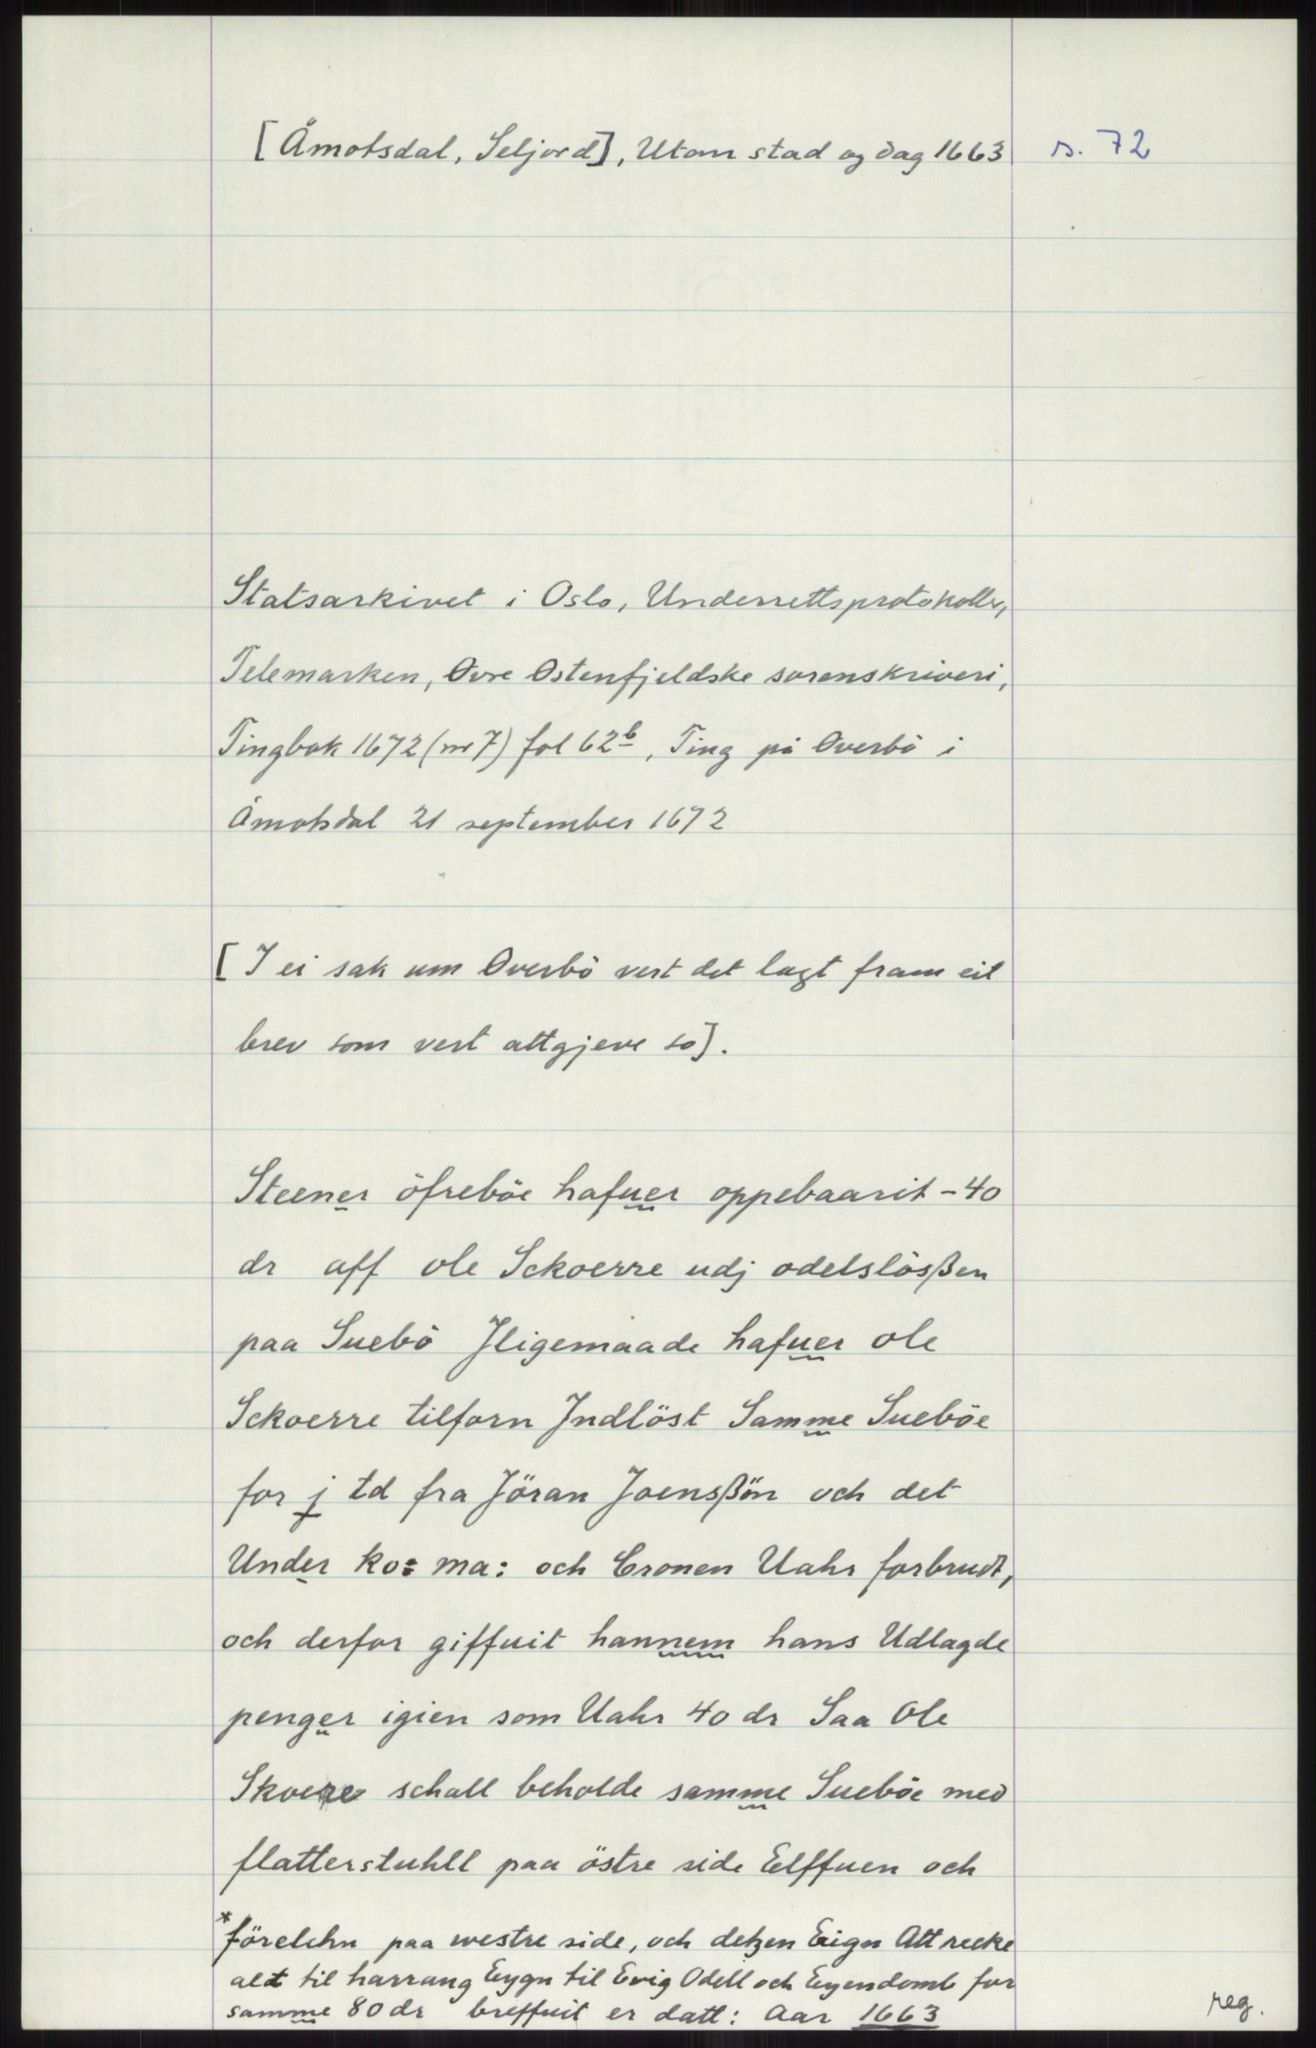 [Åmotsdal, Seljord], Utan stad og dag 1663
s. 72
Statsarkivet i Oslo, Underrettsprotokoller,
Telemarken, Øvre Østenfjeldske sorenskriveri,
Tingbok 1672 (nr 7) fol 62b, Ting på Øverbö i
Åmotsdal 21 september 1672
[I ei sak um Øverbö vert det lagt fram eit
brev som vert attgjeve so].
Steener öfreböe hafuer oppebaarit - 40
dr aff ole Sckoerre udj odelslösßen
paa Suebö Jligemaade hafuer ole
Sckoerre tilforn Jndlöst Samme Sueböe
for j td fra Jöran Joensßön och det
Under ko: ma: och Cronen Uahr forbrudt,
och derfor giffuit hannem hans Udlagde
penger igien som Uahr 40 dr Saa Ole
Skoere schall beholde samme Sueböe med
flatterstuhll paa östre side Elffuen och
*förelehn paa westre side, och detzen Eign Att recke
alt til harrang Eygn til Evig Odell och Eyendomb for
samme 80 dr breffuit er datt: Aar 1663
reg.